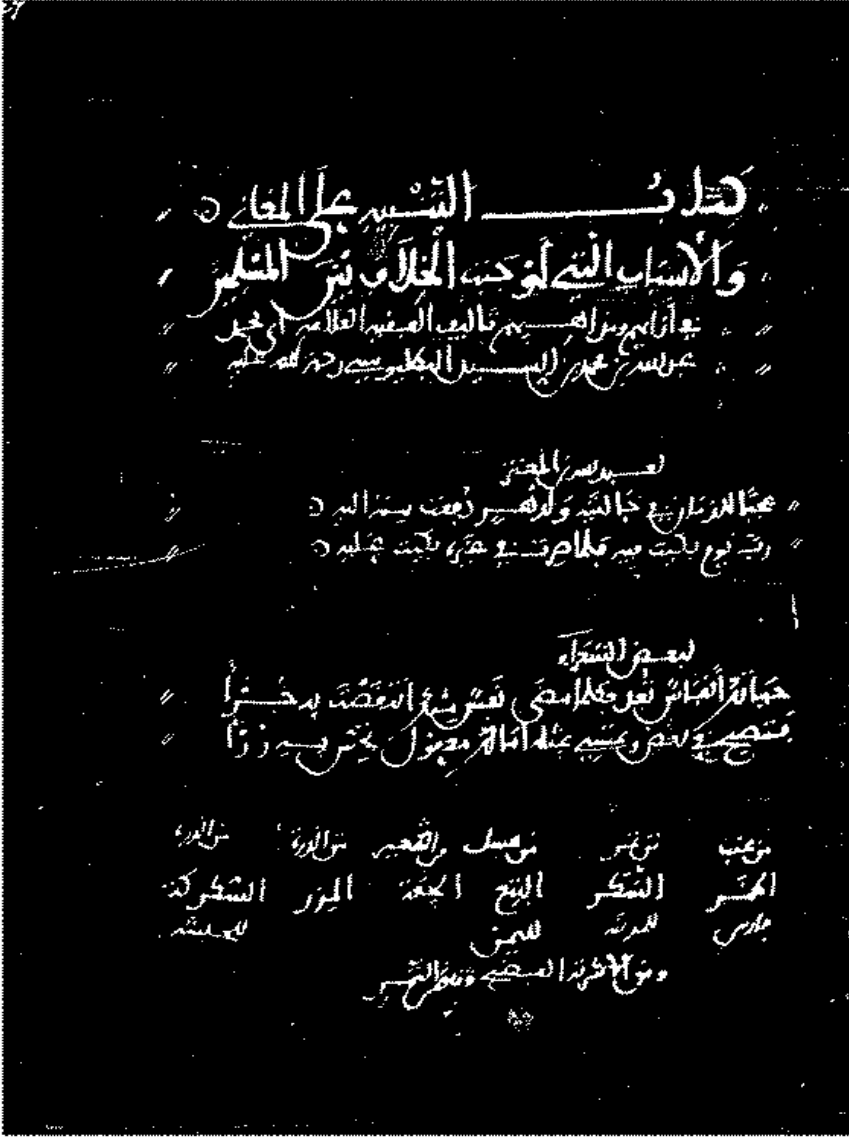 كتاب التنبيه على المعاني
والأسباب التي أوجبت الخلاف بين المسلمين
في آرائهم ومذاهبهم تأليف الفقيه العلامة أبي محمد
عبد الله بن محمد بن السيد البطليوسي رحمة الله عليه
لعبد الله بن المعتز
عجبا للزمان في حالتيه ولأمر دفعت منه إليه
رب يوم بكيت فيه فلما صرت في غيره بكيت عليه
لبعض الشعراء
حياتك أنفاس تعد فكلما مضى نفس منها انتقصت به جزءا
فتصبح في نقص وتمسي بمثله أمالك معقول تحس به رزءا
من عنب من تمر من عسل من الشعير من الذرة من الذرة
الخمر السكر البتع الجعة المزر السكركة
فارس للمدينة لليمن للحبشة
ومن الأشربة الفضيخ وهو من البسر